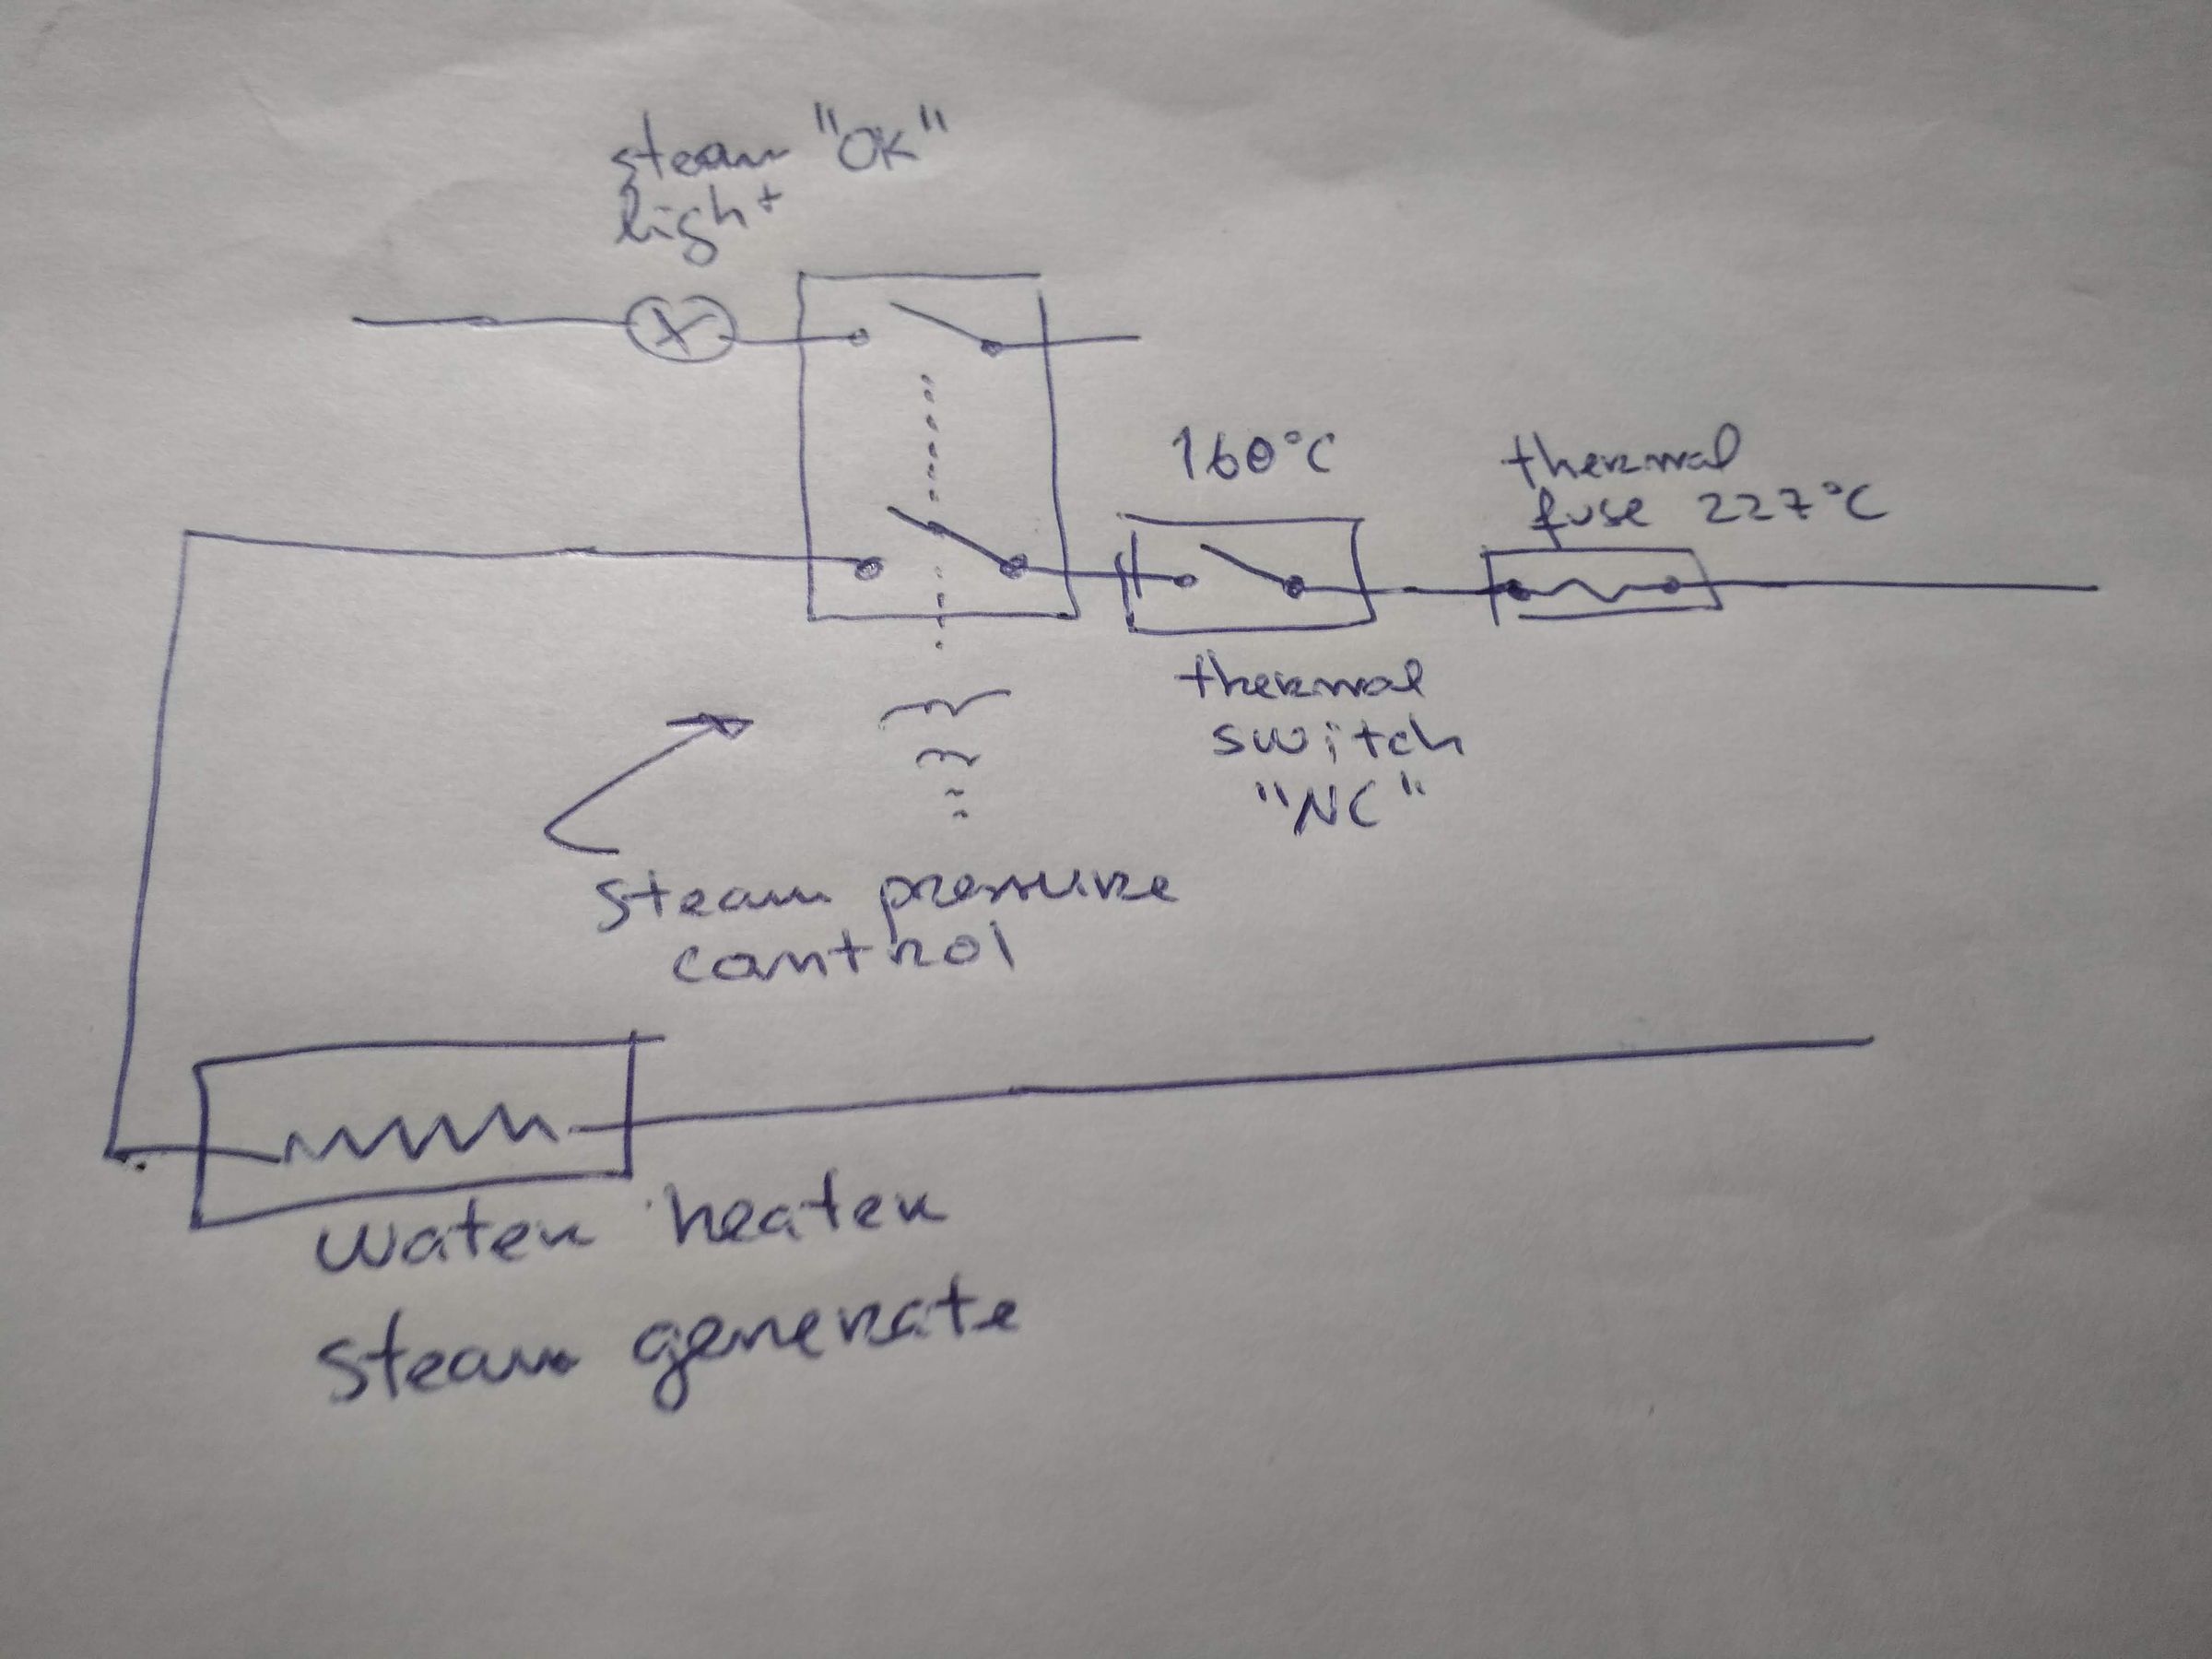 steam "OK"
light
160°C
thermal
fuse 227°C
thermal
switch
"NC"
steam pressure
control
water heater
steam generate